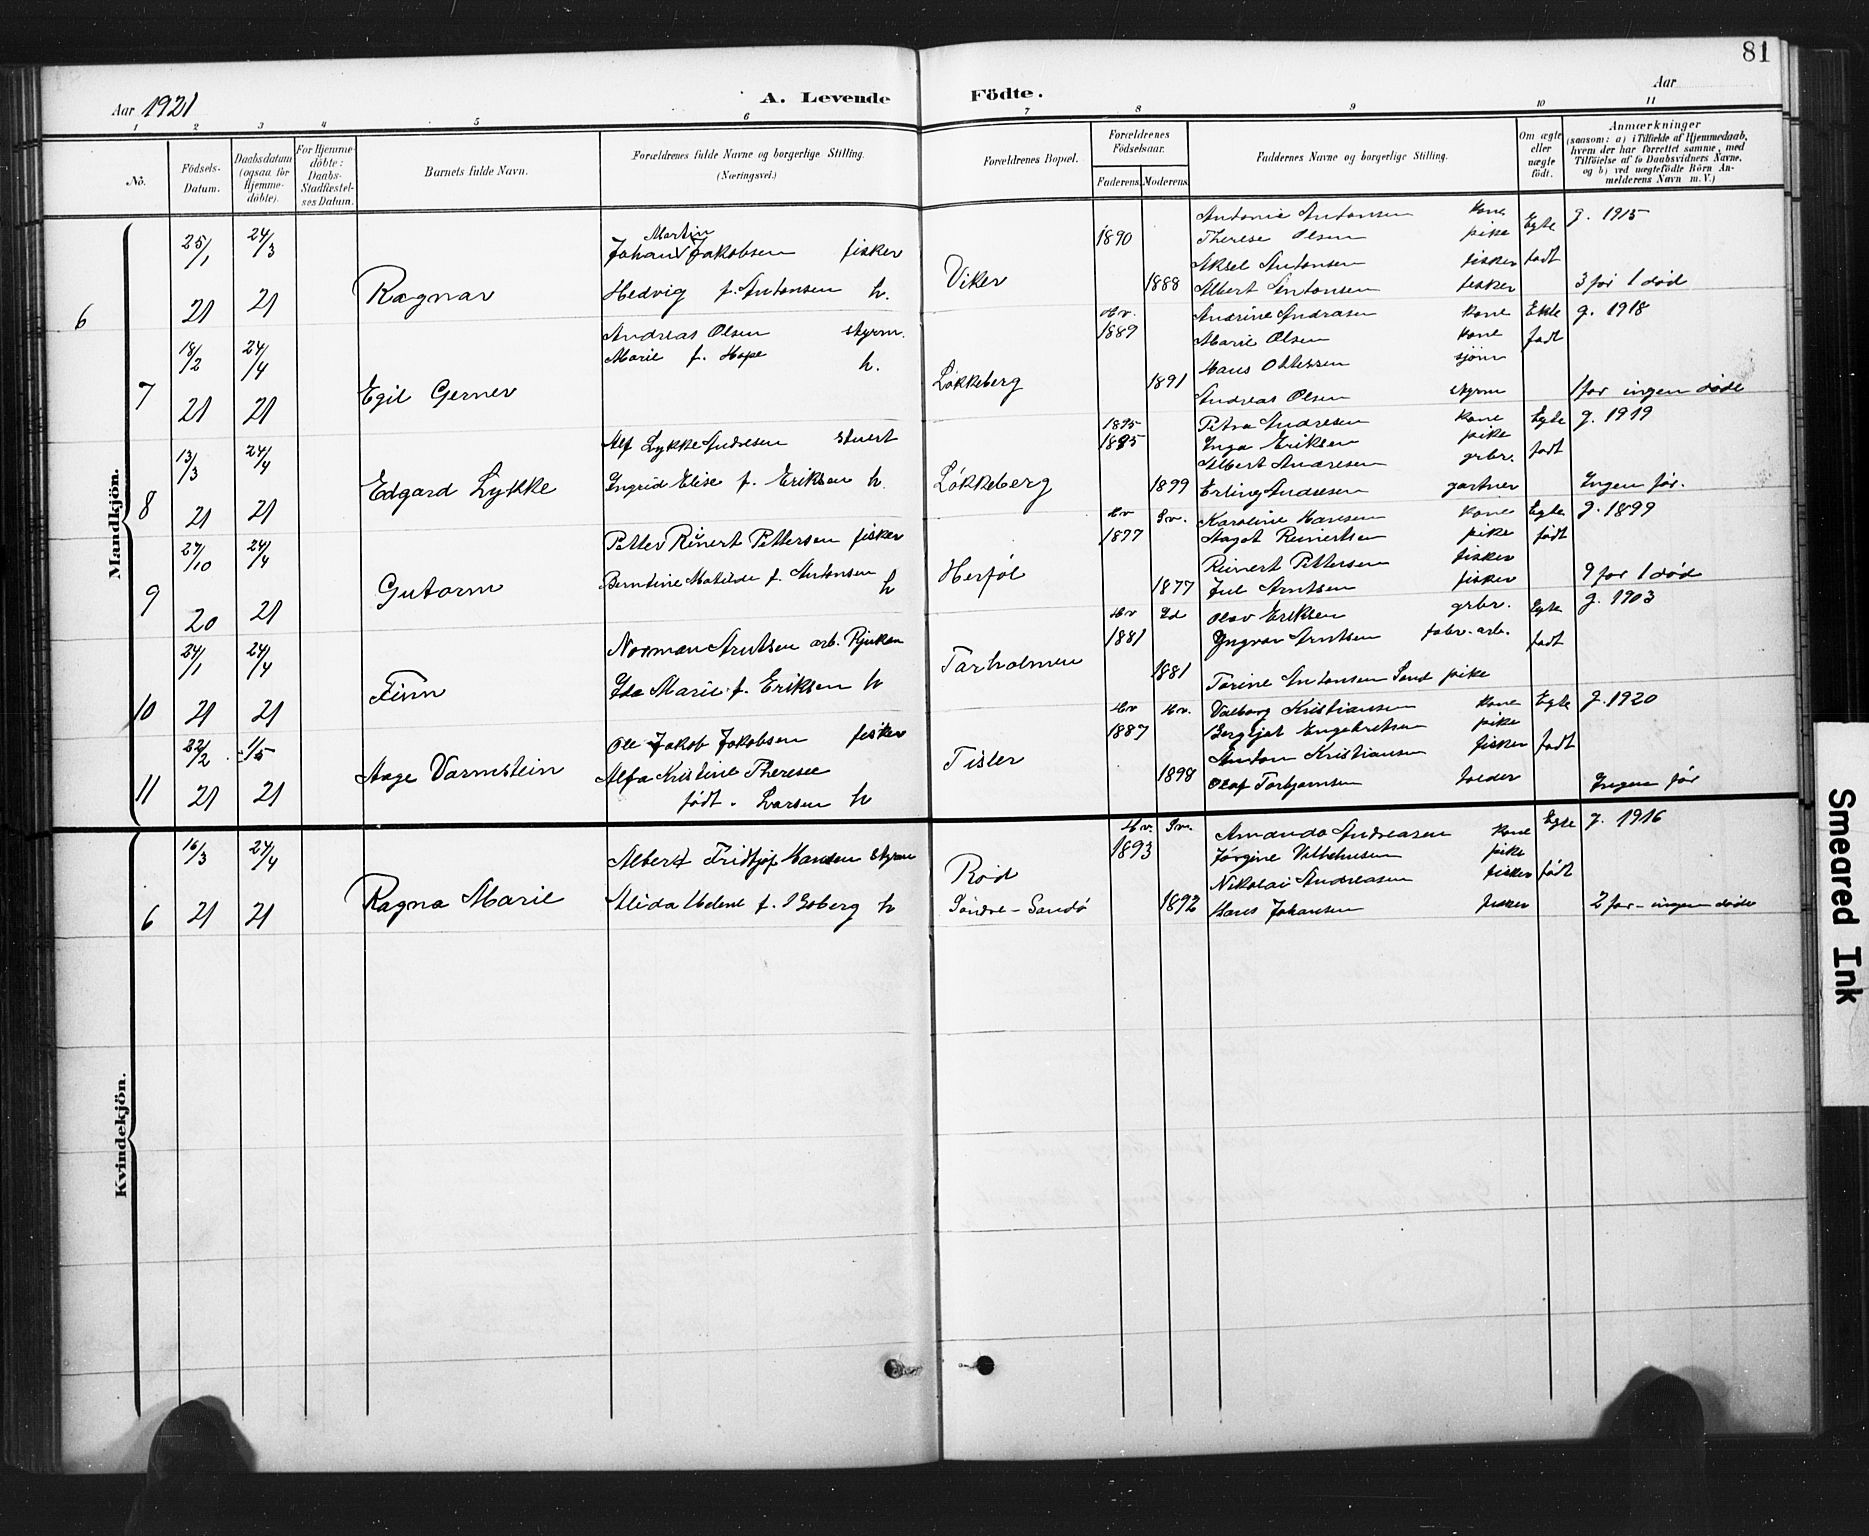 81
Aar 1921
A. Levende Födte.
Aar
1 2 3 4 5 6 7 8 9 10 11
No.
Födsels-Datum.
Daabsdatum (ogsaa for Hjemme-döbte).
For Hjemme-döbte: Daabs-Stadfæstel-ses Datum.
Barnets fulde Navn.
Forældrenes fulde Navne og borgerlige Stilling. (Næringsvei.)
Forældrenes Bopæl.
Forældrenes Födselsaar.
Faderens. Moderens.
Faddernes Navne og borgerlige Stilling.
Om ægte eller uægte födt.
Anmærkninger
(saasom: a) i Tilfælde af Hjemmedaab, hvem der har forrettet samme, med Tilföielse af to Daabsvidners Navne, og b) ved uægtefödte Börn An-melderens Navn m. V.)
Mandkjön.
6 25/1 21 24/3 21 Ragnar
Johan Martin Jakobsen fisker
Hedvig f. Antonsen h.
Viker 1890 1888
Antonie Antonsen kone
Therese Olsen pike
Aksel Antonsen fisker
Albert Antonsen fisker
Egte født
g. 1915
3 før 1 død
7 18/2 21 24/4 21 Egil Gerner
Andreas Olsen styrm.
Marie f. Hope h.
Løkkeberg Hv. 1889 1891
Andrine Andrasen kone
Marie Olsen kone
Hans Ottersen sjøm
Andreas Olsen styrm
Ekte født
g. 1918
1 før ingen døde
8 13/3 21 24/4 21 Edgard Lykke
Alf Lykke Andresen stuert
Ingrid Elise f. Eriksen h.
Løkkeberg 1895 1895 1899
Petra Andresen kone
Inga Eriksen pike
Albert Andresen grbr.
Erling Andresen gartner
Egte født
g. 1919
Ingen før.
9 27/10 20 24/4 21 Gutorm
Petter Rinert Pettersen fisker
Berntine Matilde f. Antonsen h
Herføl Hv Sv. 1877 1877
Karoline Hansen kone
Aagot Reinertsen pike
Reinert Pettersen fisker
Jul Arntsen fisker
Egte født
g. 1899
9 før 1 død
10 24/1 21 24/4 21 Finn
Norman Arntsen arb. Rjukan
Ida Marie f. Eriksen h
Tarholmen Hv Id 1881 1881
Olav Eriksen grbr.
Yngvar Arntsen fabr. arb.
Torine Antonsen Sand pike
Egte født
g. 1903
11 22/2 21 1/5 21 Aage Varmstein
Ole Jakob Jakobsen fisker
Alfa Kristine Therese
født. Larsen h
Tisler Hv Hv. 1887 1898
Valborg Kristiansen kone
Bergljot Engebretsen pike
Anton Kristiansen fisker
Olaf Torbjørnsen tolder
Egte født
g. 1920
Ingen før
Kvindekjön.
6 16/3 21 24/4 21 Ragna Marie
Albert Fridtjof Hansen styrm
Alida Helene f. Boberg h
Rød
Søndre-Sandø
Hv. Sv. 1893 1892
Amanda Andreasen kone
Jørgine Vilhelmsen pike
Nikolai Andreasen fisker
Hans Johansen fisker
Egte født
g. 1916
2 før - ingen døde
Smeared Ink